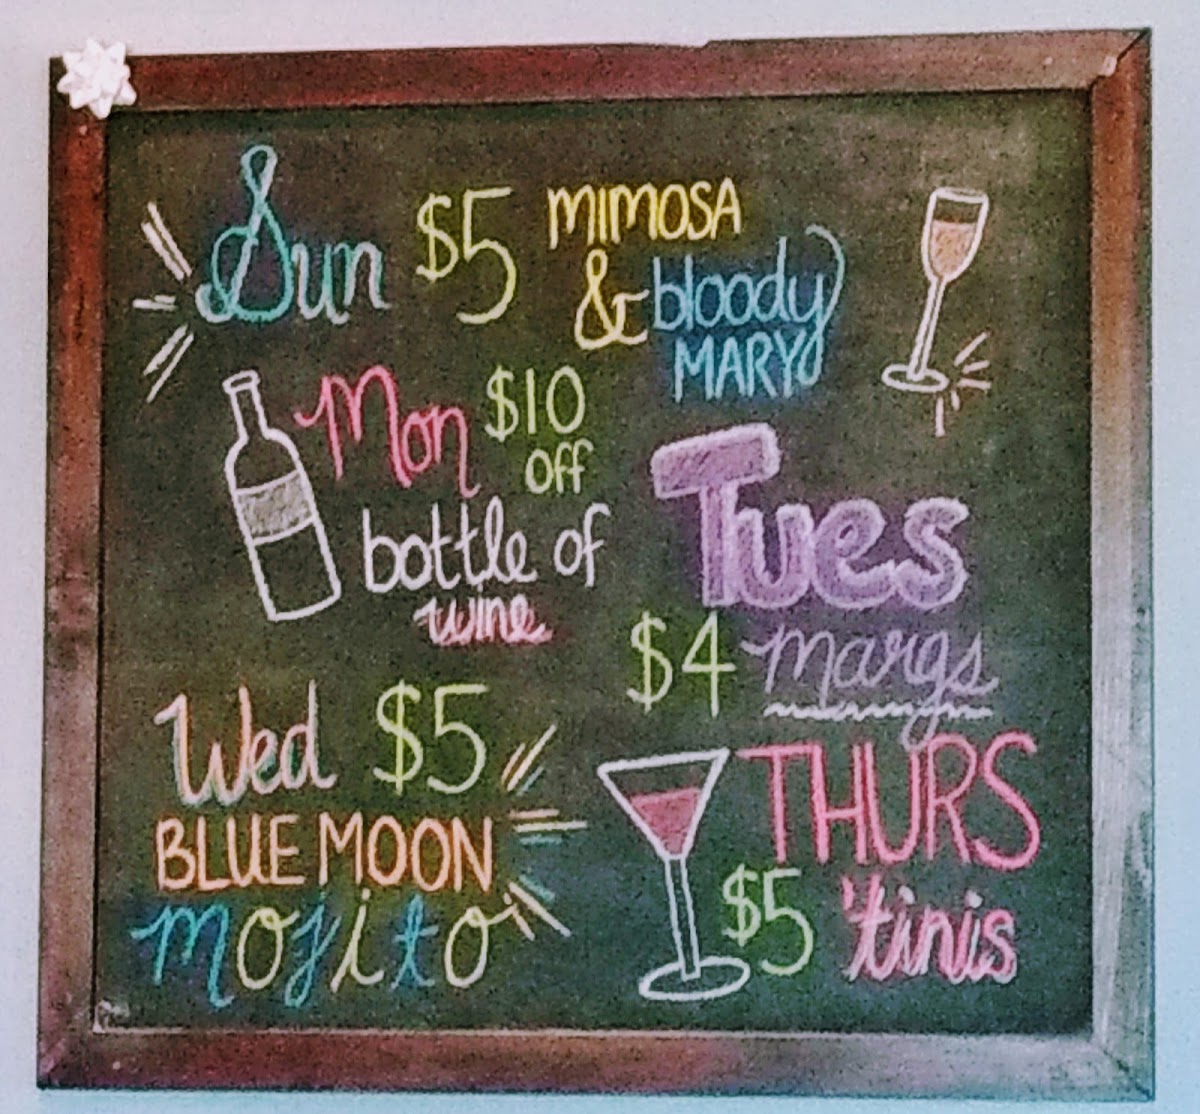 Sun $5 MIMOSA
& bloody
MARY
Mon $10
off
bottle of
wine
Tues
$4 margs
Wed $5
BLUE MOON
mojito
THURS
$5 'tinis